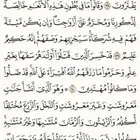 يَفْتَرُونَ ۝ وَقَالُوا۟ مَا فِى بُطُونِ هَٰذِهِ ٱلْأَنْعَٰمِ خَالِصَةٌ
لِّذُكُورِنَا وَمُحَرَّمٌ عَلَىٰٓ أَزْوَٰجِنَا وَإِن يَكُن مَّيْتَةً
فَهُمْ فِيهِ شُرَكَآءُ سَيَجْزِيهِمْ وَصْفَهُمْ إِنَّهُۥ حَكِيمٌ
عَلِيمٌ ۝ قَدْ خَسِرَ ٱلَّذِينَ قَتَلُوٓا۟ أَوْلَٰدَهُمْ سَفَهًۢا بِغَيْرِ
عِلْمٍ وَحَرَّمُوا۟ مَا رَزَقَهُمُ ٱللَّهُ ٱفْتِرَآءً عَلَى ٱللَّهِ قَدْ ضَلُّوا۟
وَمَا كَانُوا۟ مُهْتَدِينَ ۝ وَهُوَ ٱلَّذِىٓ أَنشَأَ جَنَّٰتٍ
مَّعْرُوشَٰتٍ وَغَيْرَ مَعْرُوشَٰتٍ وَٱلنَّخْلَ وَٱلزَّرْعَ مُخْتَلِفًا